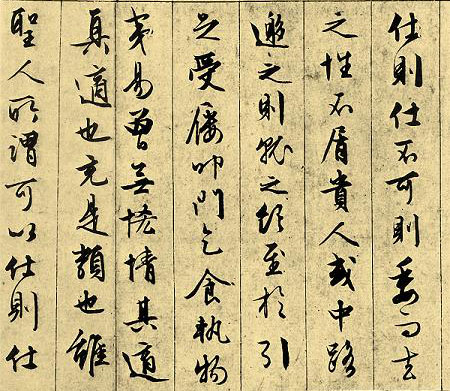 仕則仕不可則委而去
之性不屑貴人或中路
邀之則就之至於引
之受屨叩門乞食執物
交易曾无恡情其適
真適也充是類也雖
聖人所謂可以仕則仕